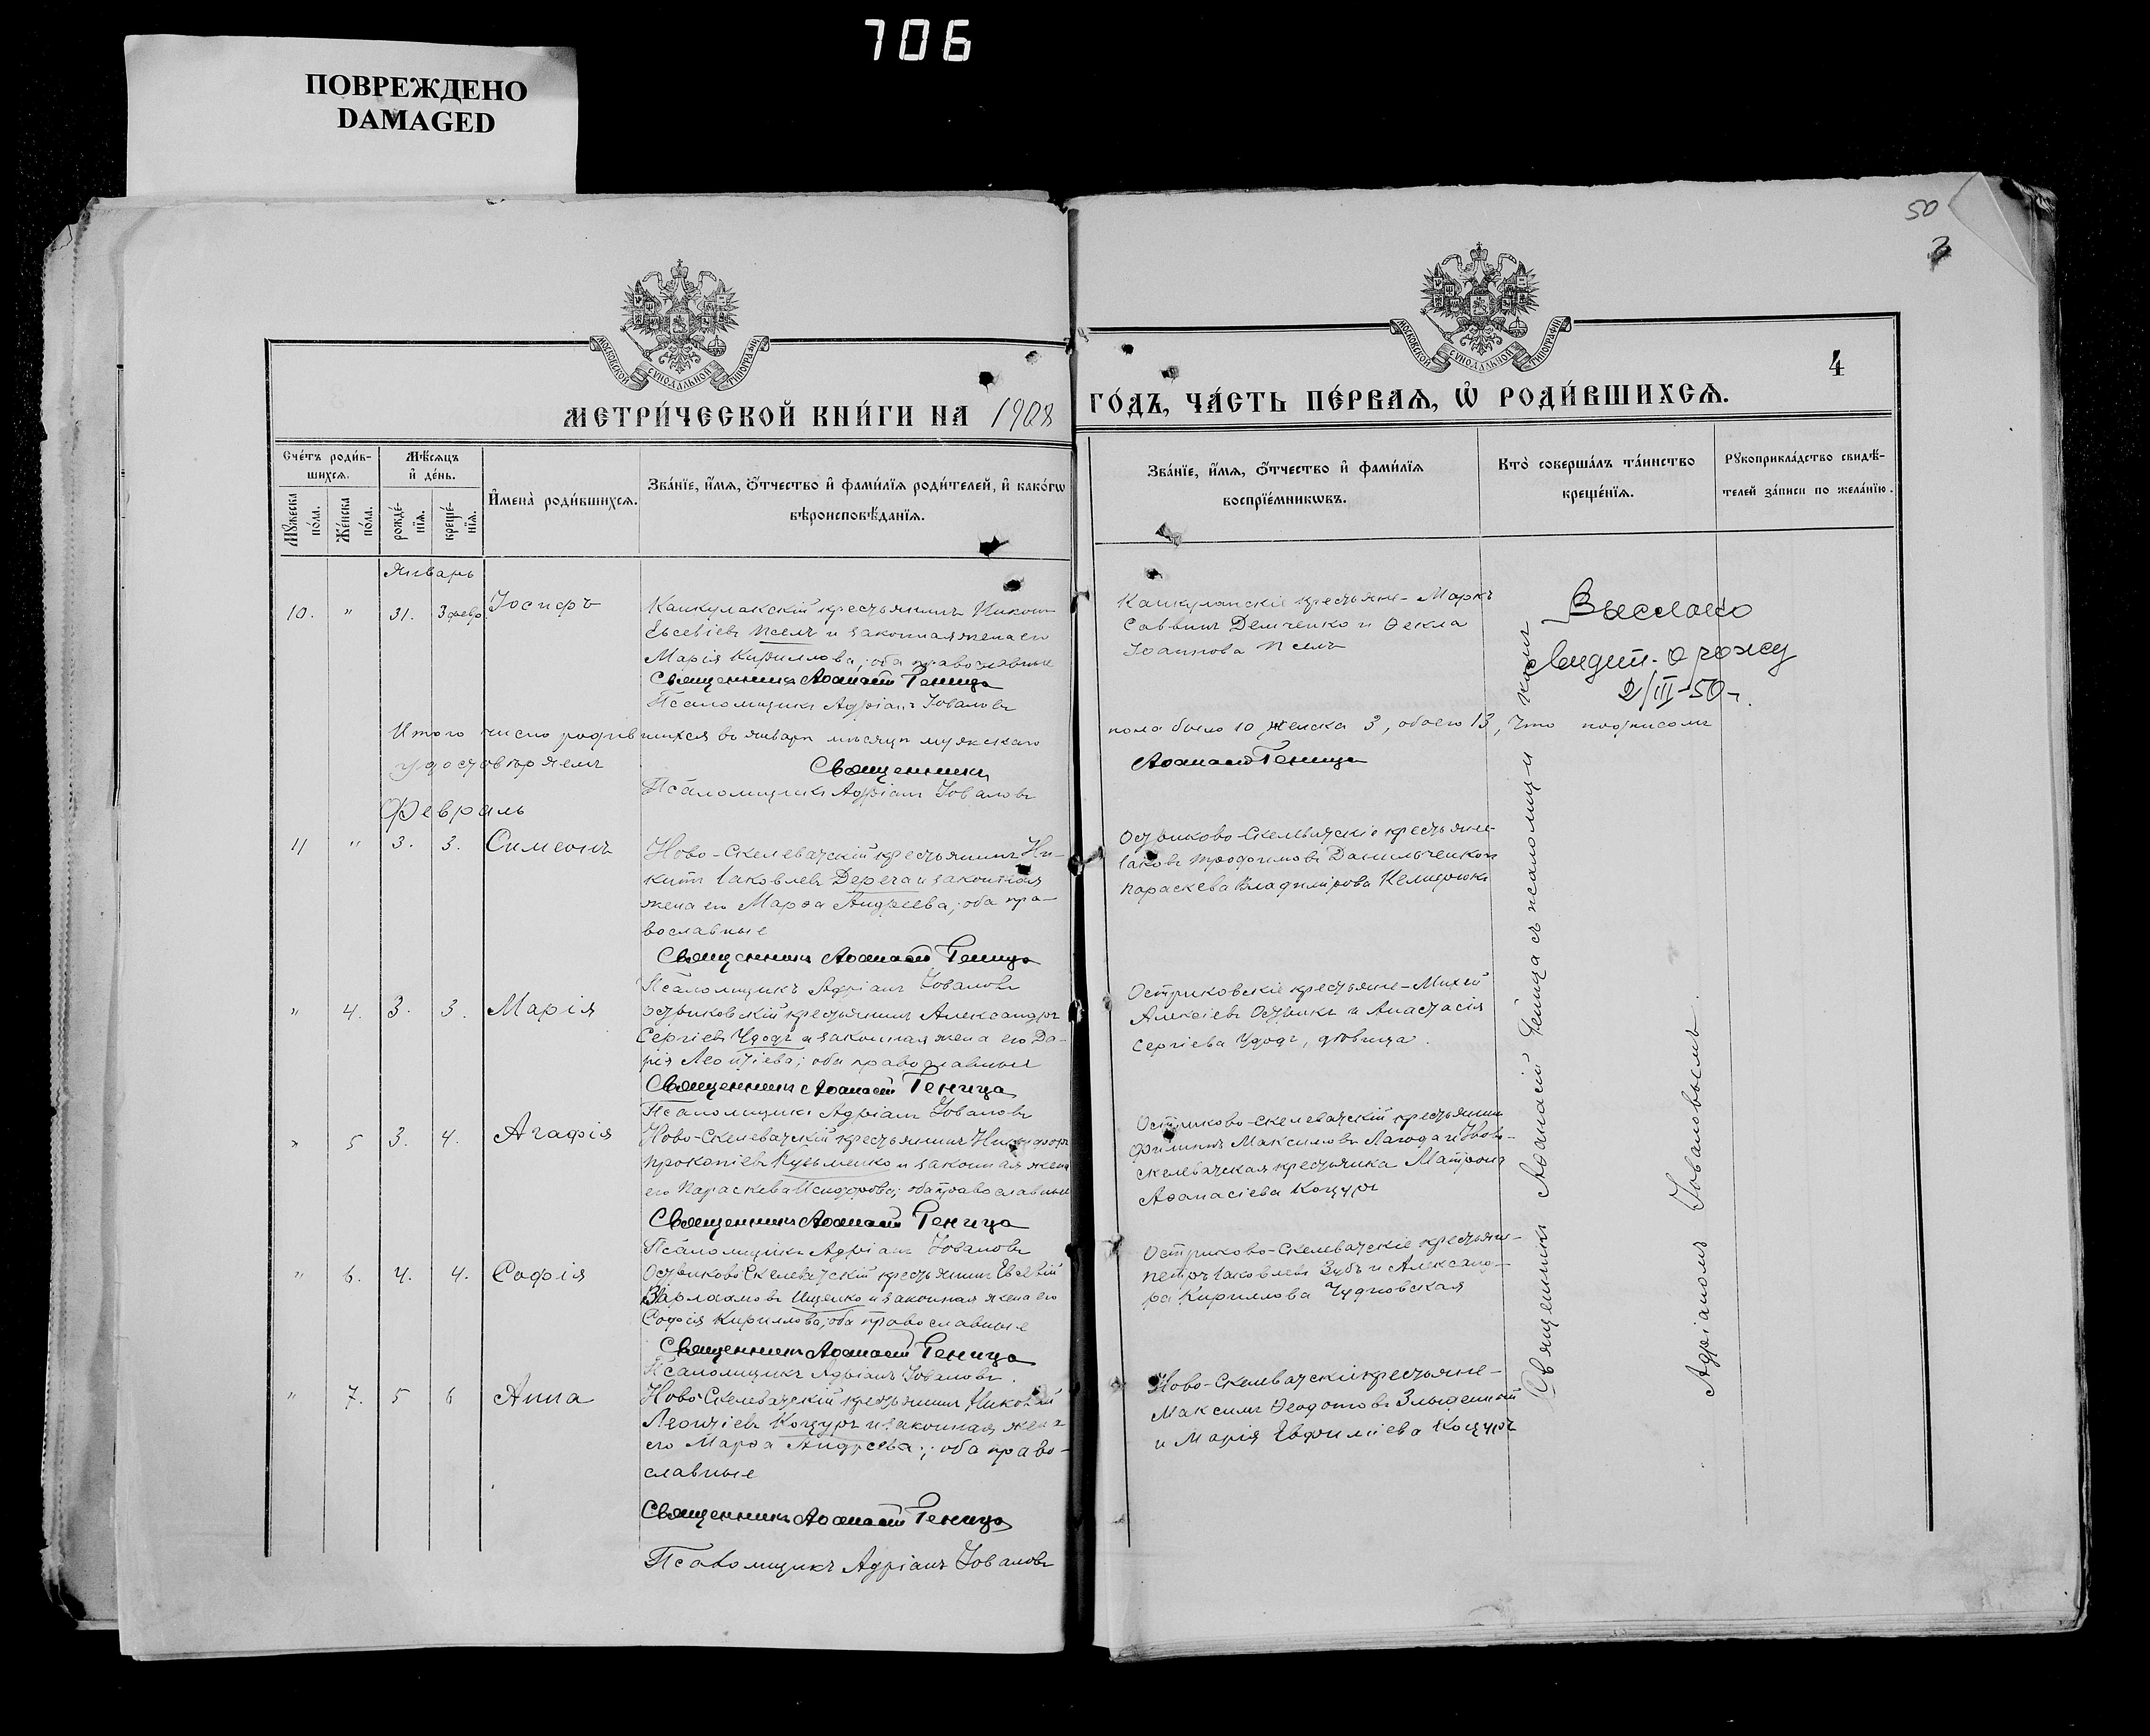 706
ПОВРЕЖДЕНО
DAMAGED
50
3
МОСКОВСКОЙ СѴНОДАЛЬНОЙ ТИПОГРАФІИ
МОСКОВСКОЙ СѴНОДАЛЬНОЙ ТИПОГРАФІИ
4
МЕТРИ́ЧЕСКОЙ КНИ́ГИ НА 1908 ГО́ДЪ, ЧА́СТЬ ПЕ́РВАѦ, Ѡ҆ РОДИ́ВШИХСѦ.
Сче́тъ роди́в-
шихсѧ.
Мꙋжеска по́ла.
Же́нска по́ла.
Мѣ́сѧцъ
и҆ де́нь.
рожде́-
нїѧ.
креще́-
нїѧ.
И҆мена̀ роди́вшихсѧ.
Зва́нїе, и҆́мѧ, ѻ҆́тчество и҆ фами́лїѧ роди́телей, и҆ како́гѡ
вѣроисповѣ́данїѧ.
Зва́нїе, и҆́мѧ, ѻ҆́тчество и҆ фами́лїѧ
воспрїе́мникѡвъ.
Кто̀ соверша́лъ та́инство
креще́нїѧ.
Рꙋкоприкла́дство свидѣ́-
телей за́писи по жела́нїю.
Январь
10. " 31. 3 февр. Іосифъ
Канкулакскій крестьянинъ Никон
Евсевіевъ Псёлъ и законная жена его
Марія Кириллова; оба православные
Священникъ Аѳанасій Геница
Псаломщикъ Адріанъ Іовановъ
Саввинъ Демченко и Ѳекла
Іоаннова Псёлъ
Выслано
свидет. о рожд
2/III-50 г.
Итого число родившихся въ январѣ мѣсяцѣ мужскаго пола было 10, женска 3, обоего 13, Что подписомъ
удостовѣряемъ
Священникъ Аѳанасій Геница
Псаломщикъ Адріанъ Іовановъ
Февраль
11 " 3. 3. Симеонъ
Ново-Скелеватскій крестьянинъ Ни-
кита Іаковлевъ Дерега и законная
жена его Марѳа Андреева; оба пра-
вославные
Священникъ Аѳанасій Геница
Псаломщикъ Адріанъ Іовановъ
Остриково-Скелеватскіе крестьяне
Іаковъ Трофимовъ Данильченко и
Параскева Владимірова
" 4. 3. 3. Марія
Остриковскій крестьянинъ Александръ
Сергіевъ Удодъ и законная жена его Да-
рія Леонтіева; оба православные
Священникъ Аѳанасій Геница
Псаломщикъ Адріанъ Іовановъ
Остриковскіе крестьяне - Михей
Алексіевъ Острикъ и Анастасія
Сергіева Удодъ, дѣвица.
" 5 3. 4. Агафія
Ново-Скелеватскій крестьянинъ Никифоръ
Прокопіевъ Кузьменко и законная жена
его Параскева Исидорова; оба православные
Священникъ Аѳанасій Геница
Псаломщикъ Адріанъ Іовановъ
Остриково-Скелеватскій крестьянинъ
Филиппъ Максимовъ Лагода и Ново-
скелеватская крестьянка Матрона
Аѳанасіева Коцуръ
" 6. 4. 4. Софія
Остриково-Скелеватскій крестьянинъ Евсевій
Варлаамовъ Ищенко и законная жена его
Софія Кириллова; оба православные
Священникъ Аѳанасій Геница
Псаломщикъ Адріанъ Іовановъ.
Остриково-Скелеватскіе крестьяне-
Петръ Іаковлевъ Зубъ и Александ-
ра Кириллова Чудновская
" 7. 5 6 Анна
Ново-Скелеватскій крестьянинъ Николай
Леонтіевъ Коцуръ и законная жена
его Марѳа Андреева; оба право-
славные
Священникъ Аѳанасій Геница
Псаломщикъ Адріанъ Іовановъ
Ново-Скелеватскіе крестьяне-
Максимъ Ѳеодотовъ
и Марія Евфиміева Коцуръ
Священникъ Аѳанасій Геница съ псаломщикомъ
Адріаномъ Іовановымъ.